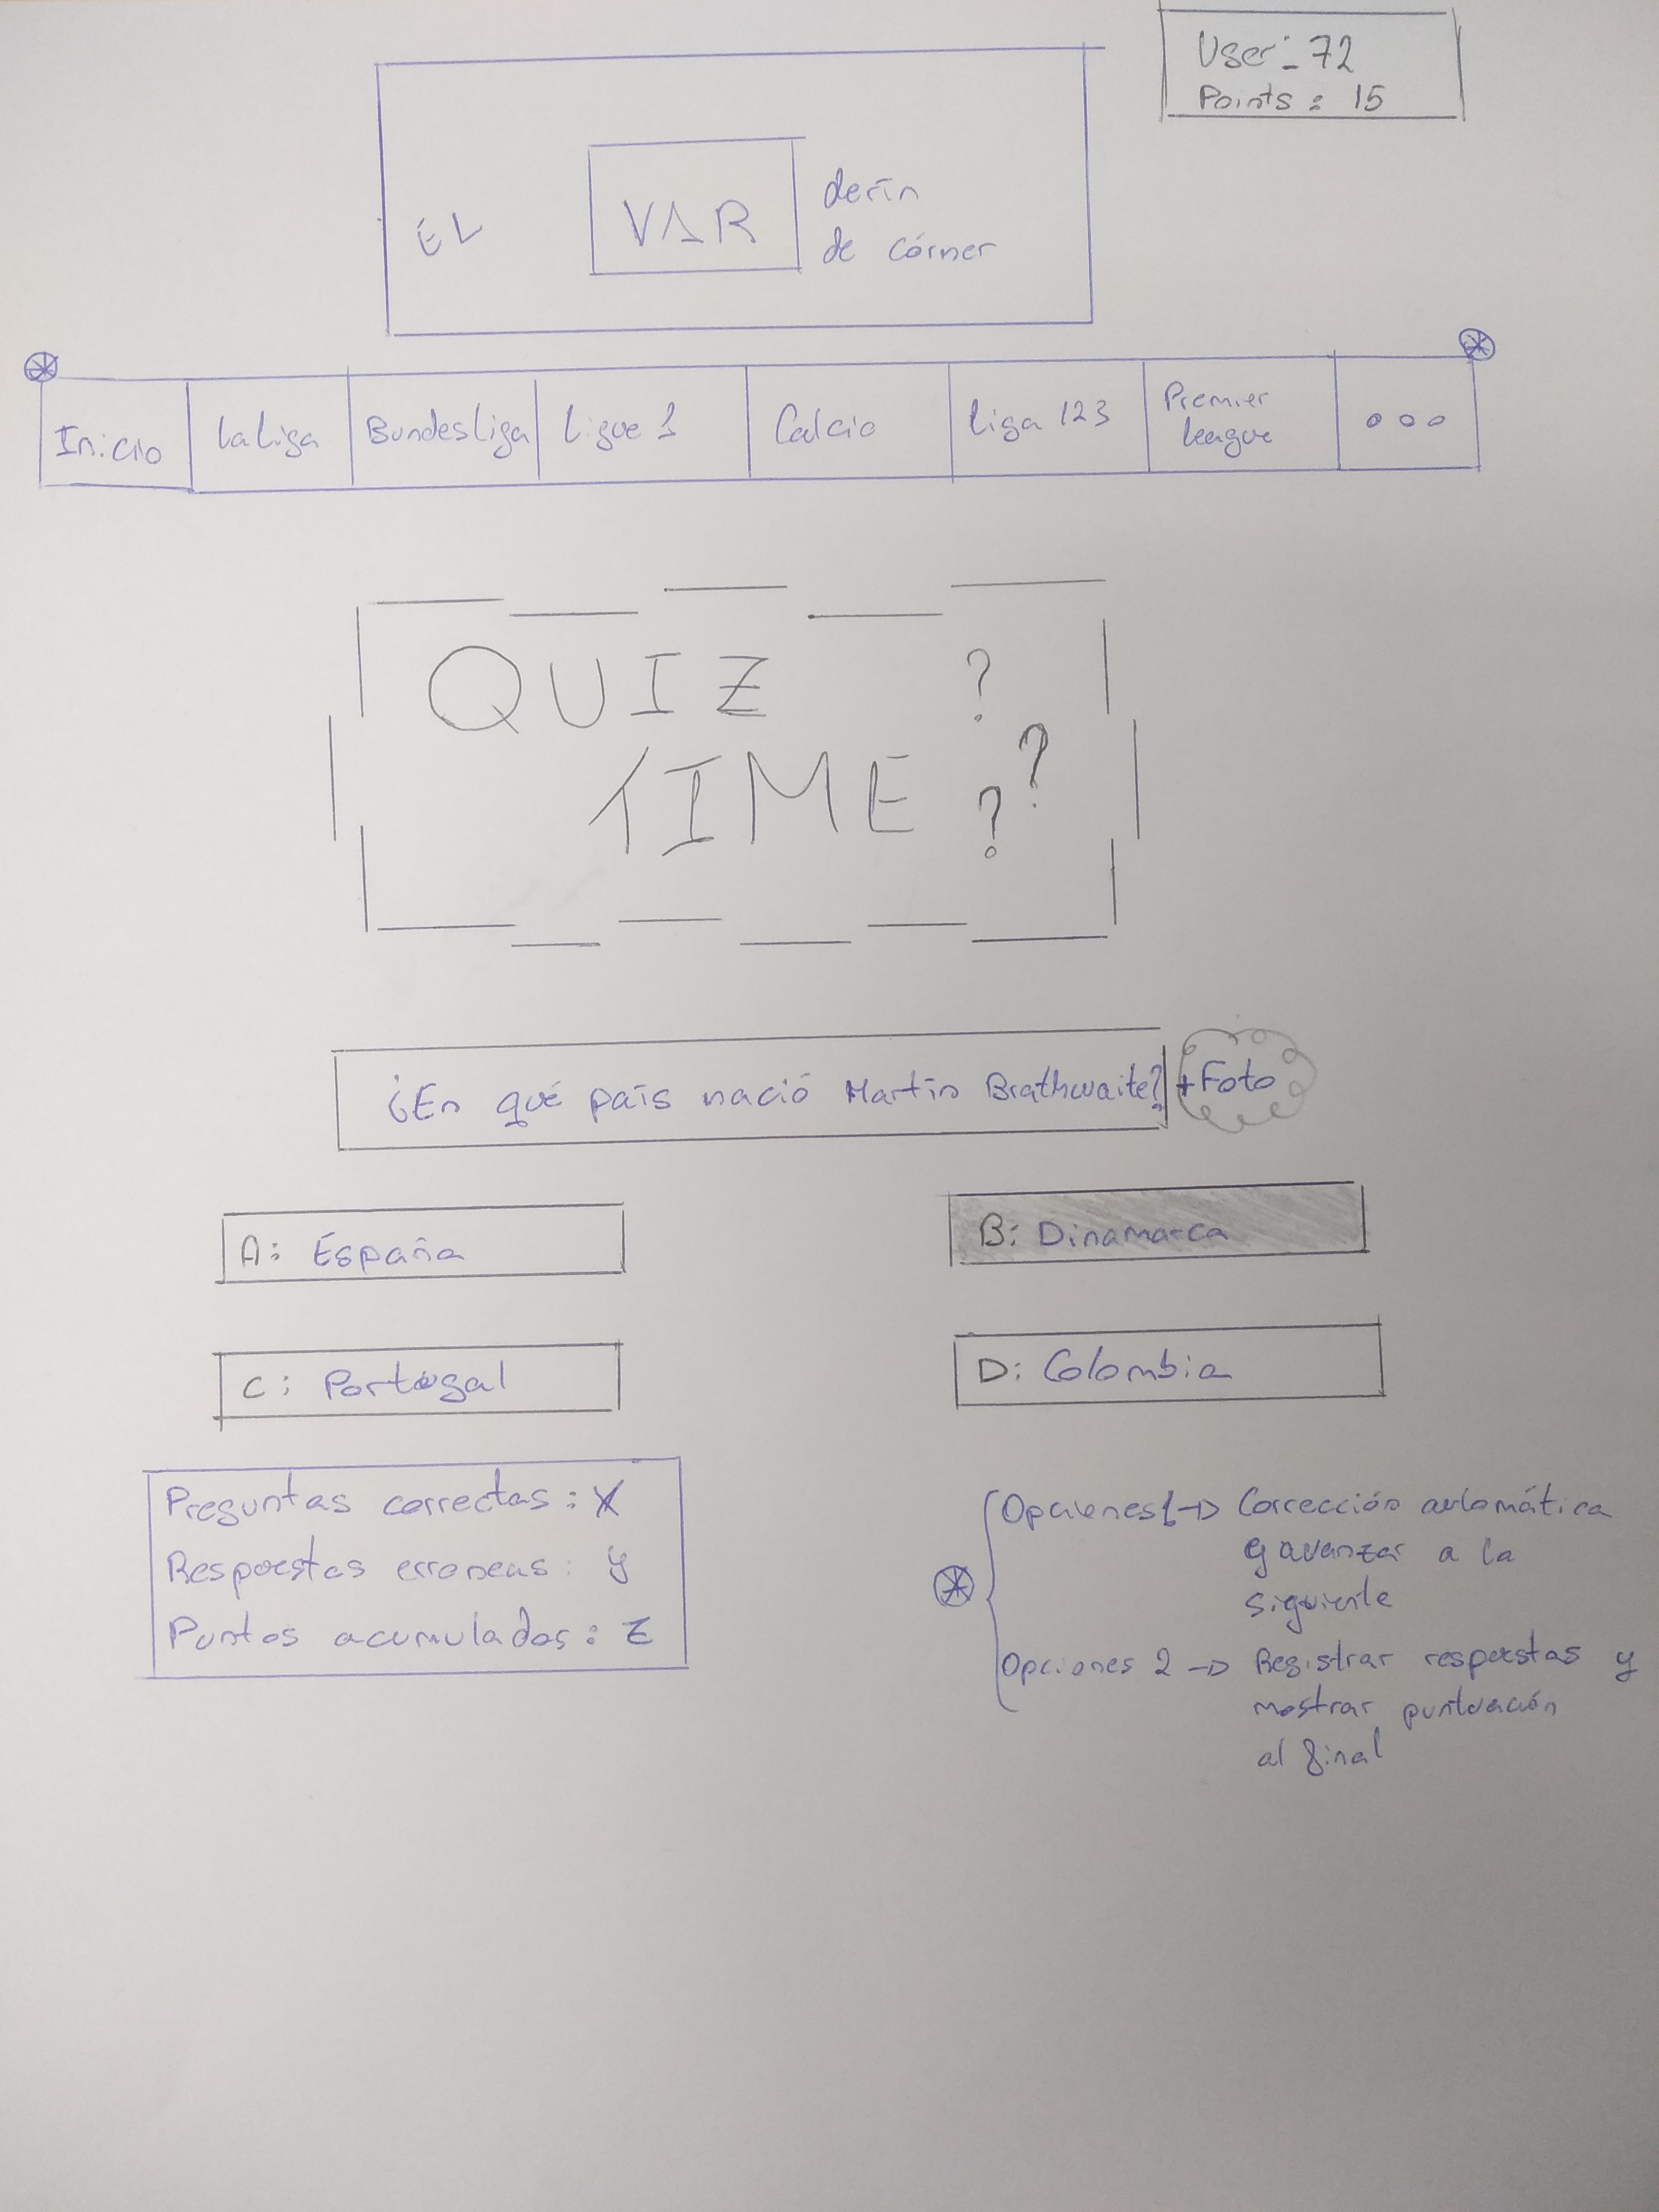 User_72
Points: 15
EL VAR derín
de córner
Inicio LaLiga Bundesliga Ligue 1 Calcio Liga 123 Premier League ooo
QUIZ ?
TIME ? ?
¿En qué país nació Martin Brathwaite? +Foto
A: España
B: Dinamarca
C: Portugal
D: Colombia
Preguntas correctas: X
Respuestas erroneas: y
Puntos acumulados: Z
Opciones 1 -> Corrección automática
y avanzar a la
siguiente
Opciones 2 -> Registrar respuestas y
mostrar puntuación
al final